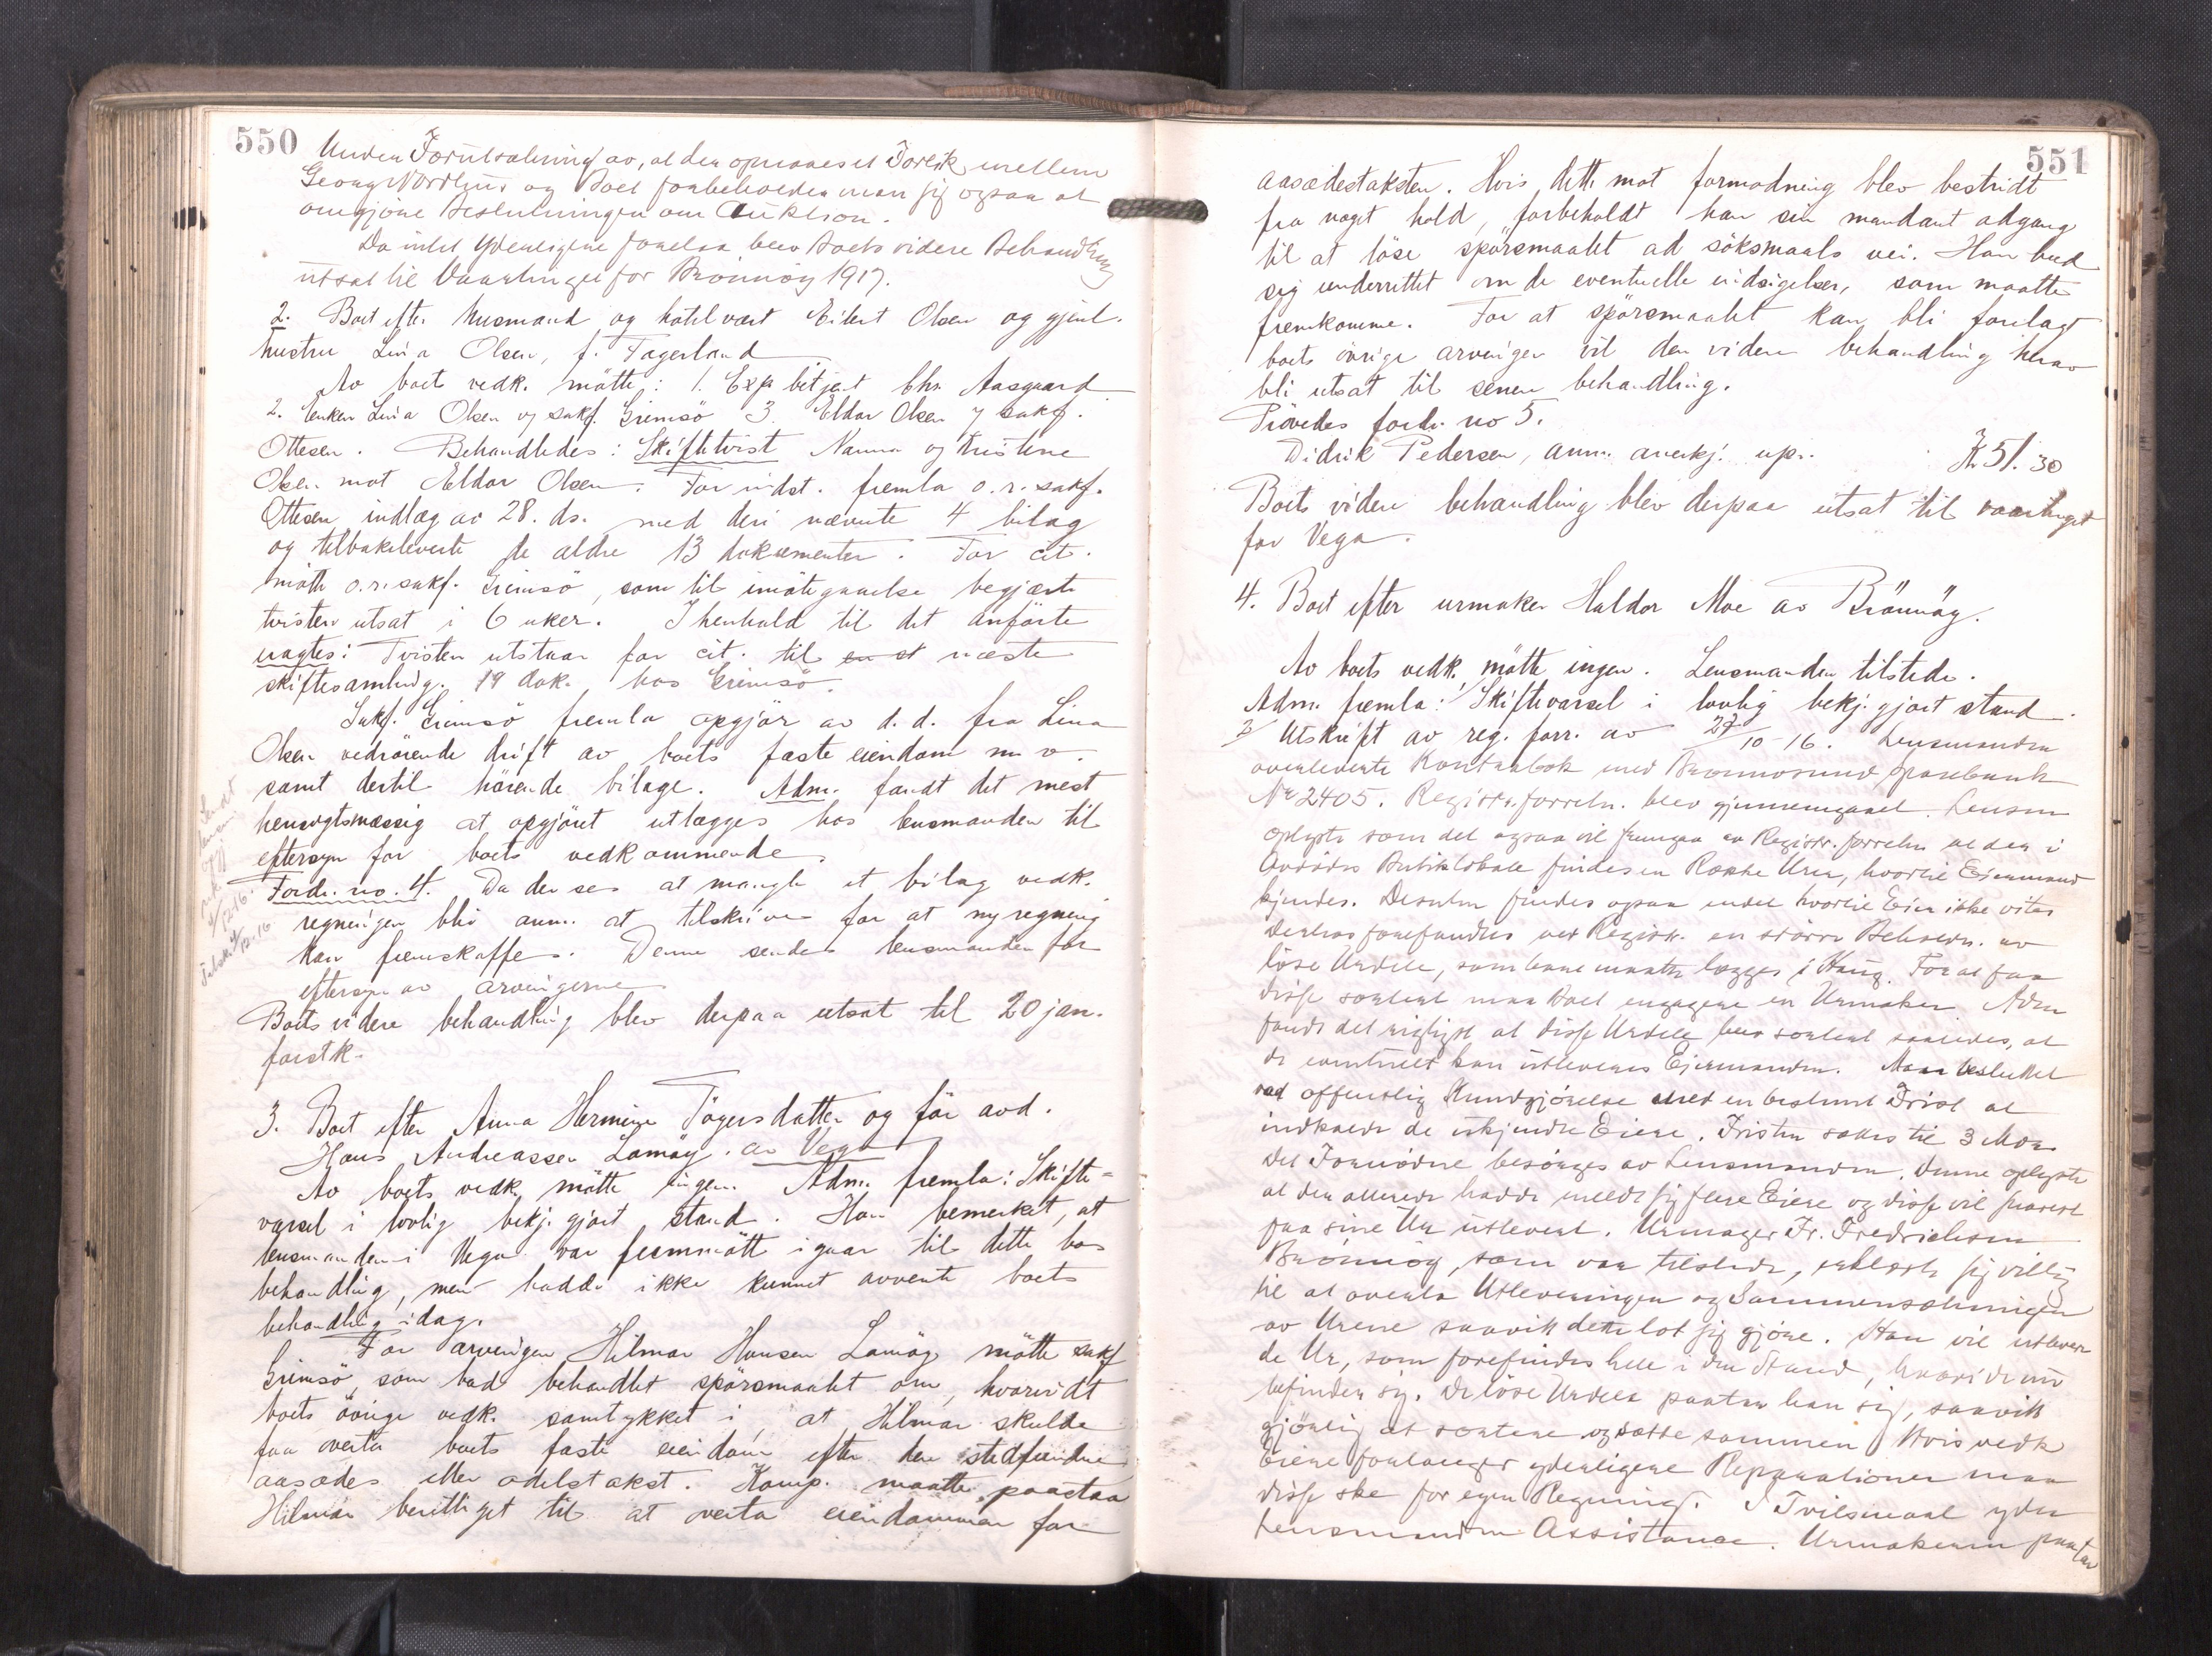 550
Under Forutsætning av, at der opnaaes et Forlik mellem
Georg Nordhus og Boet forbeholder man sig ogsaa at
omgjöre Beslutningen om Auktion.
Da intet yderligere forelaa blev Boets videre Behandling
utsat til Vaartinget for Brönnöy 1917.
2. Boet efter husmand og hotelvært Eilert Olsen og gjenl.
hustru Lina Olsen, f. Fagerland
Av boet vedk. mötte: 1. Exp betjent Chr. Aasgaard
2. Enken Lina Olsen v/ sakf. Grimsö 3. Eldar Olsen v/ sakf.
Ottesen. Behandledes: Skiftetvist Nanna og Kristine
Olsen mot Eldar Olsen. For indst. fremla o.r.sakf.
Ottesen indlæg av 28. ds. med deri nævnte 4 bilag
og tilbakeleverte de ældre 13 dokumenter. For cit.
mötte o.r.sakf. Grimsö, som til imötegaaelse begjærte
tvisten utsat i 6 uker. I henhold til det anförte
eragtes: Tvisten utstaar for cit. til en st næste
skiftesamling. 19 dok. hos Grimsö.
Sakf. Grimsö fremla opgjör av d.d. fra Lina
Olsen vedrörende drift av boets faste eiendom m v.
samt dertil hörende bilage. Adm. fandt det mest
hensigtsmæssig at opgjöret utlægges hos lensmanden til
eftersyn for boets vedkommende.
Fordr. no. 4. Da der ses at mangle et bilag vedk.
regningen blir anm. at tilskrive for at ny regning
kan fremskaffes. Denne sendes lensmanden for
eftersyn av arvingerne
Boets videre behandling blev derpaa utsat til 20 jan.
förstk.
3. Boet efter Anna Hermine Tögersdatter og för avd.
Hans Andreassen Lamöy. av Vega
Av boets vedk. mötte ingen. Adm. fremla: Skifte=
varsel i lovlig bekj. gjort stand. Han bemerket, at
lensmanden i Vega var fremmött igaar til dette bos
behandling, men hadde ikke kunnet avvente boets
behandling idag.
For arvingen Hilmar Hansen Lamöy mötte sakf
Grimsö som bad behandlet spörsmaalet om, hvorvidt
boets övrige vedk. samtykket i, at Hilmar skulde
faa overta boets faste eiendom efter den stedfundne
aasædes eller odelstakst. Komp. maatte paastaa
Hilmar berettiget til at overta eiendommen for
551
aasædestaksten. Hvis dette mot formodning blev bestridt
fra noget hold, forbeholdt han sin mandant adgang
til at löse spörsmaalet ad söksmaals vei. Han bad
sig underrettet om de eventuelle indsigelser, som maatte
fremkomme. For at spörsmaalet kan bli forelagt
boets övrige arvinger vil den videre behandling herav
bli utsat til senere behandling.
Prövedes fordr. no 5.
Didrik Pedersen, anm. anerkj. opr. Kr 51.30
Boets videre behandling blev derpaa utsat til vaartinget
for Vega.
4. Boet efter urmaker Haldor Moe av Brönnöy.
Av boets vedk. mötte ingen. Lensmanden tilstede.
Adm. fremla: Skiftevarsel i lovlig bekj. gjort stand.
2/ Utskrift av reg. forr. av 27/10-16. Lensmanden
overleverte Kontrabok med Brönnösund Sparebank
No 2405. Registr. forretn. blev gjennemgaaet. Lensm
oplyste som det ogsaa vil fremgaa av Registr. forretn at der i
Avdödes Butiklokale findes en Række Urer, hvortil Eiermand
kjendes. Desuten findes ogsaa endel hvortil Eier ikke vites
Derhos forefandtes ved Registr. en större Beholdn. av
löse Urdele, som bare maatte lægges i Haug. For at faa
disse sortert maa Boet engagere en Urmaker. Adm
fandt det rigtigst at disse Urdele blev sortert saaledes, at
de eventuelt kan utleveres Eiermanden. Man besluttet
ved offentlig Kundgjörelse med en bestemt Frist at
indkalde de ukjendte Eiere. Fristen sættes til 3 Mdr.
Det Fornödne besörges av Lensmanden. Denne oplyste
at der allerede hadde meldt sig flere Eiere og disse vil snarest
faa sine Ur utlevert. Urmager Fr. Fredrichsen
Brönnöy, som var tilstede, erklærte sig villig
til at overta Utleveringen og Sammensætningen
av Urene saavidt dette lot sig gjöre. Han vil utlevere
de Ur, som forefindes hele i den Stand, hvori de nu
befinder sig. De löse Urdele paatar han sig, saavidt
gjörlig at sortere og sætte sammen. Hvis vedk
Eiere forlanger yderligere Reparationer maa
disse ske for egen Regning. I Tvilsmaal yder
Lensmanden Assistance. Urmakeren paatar